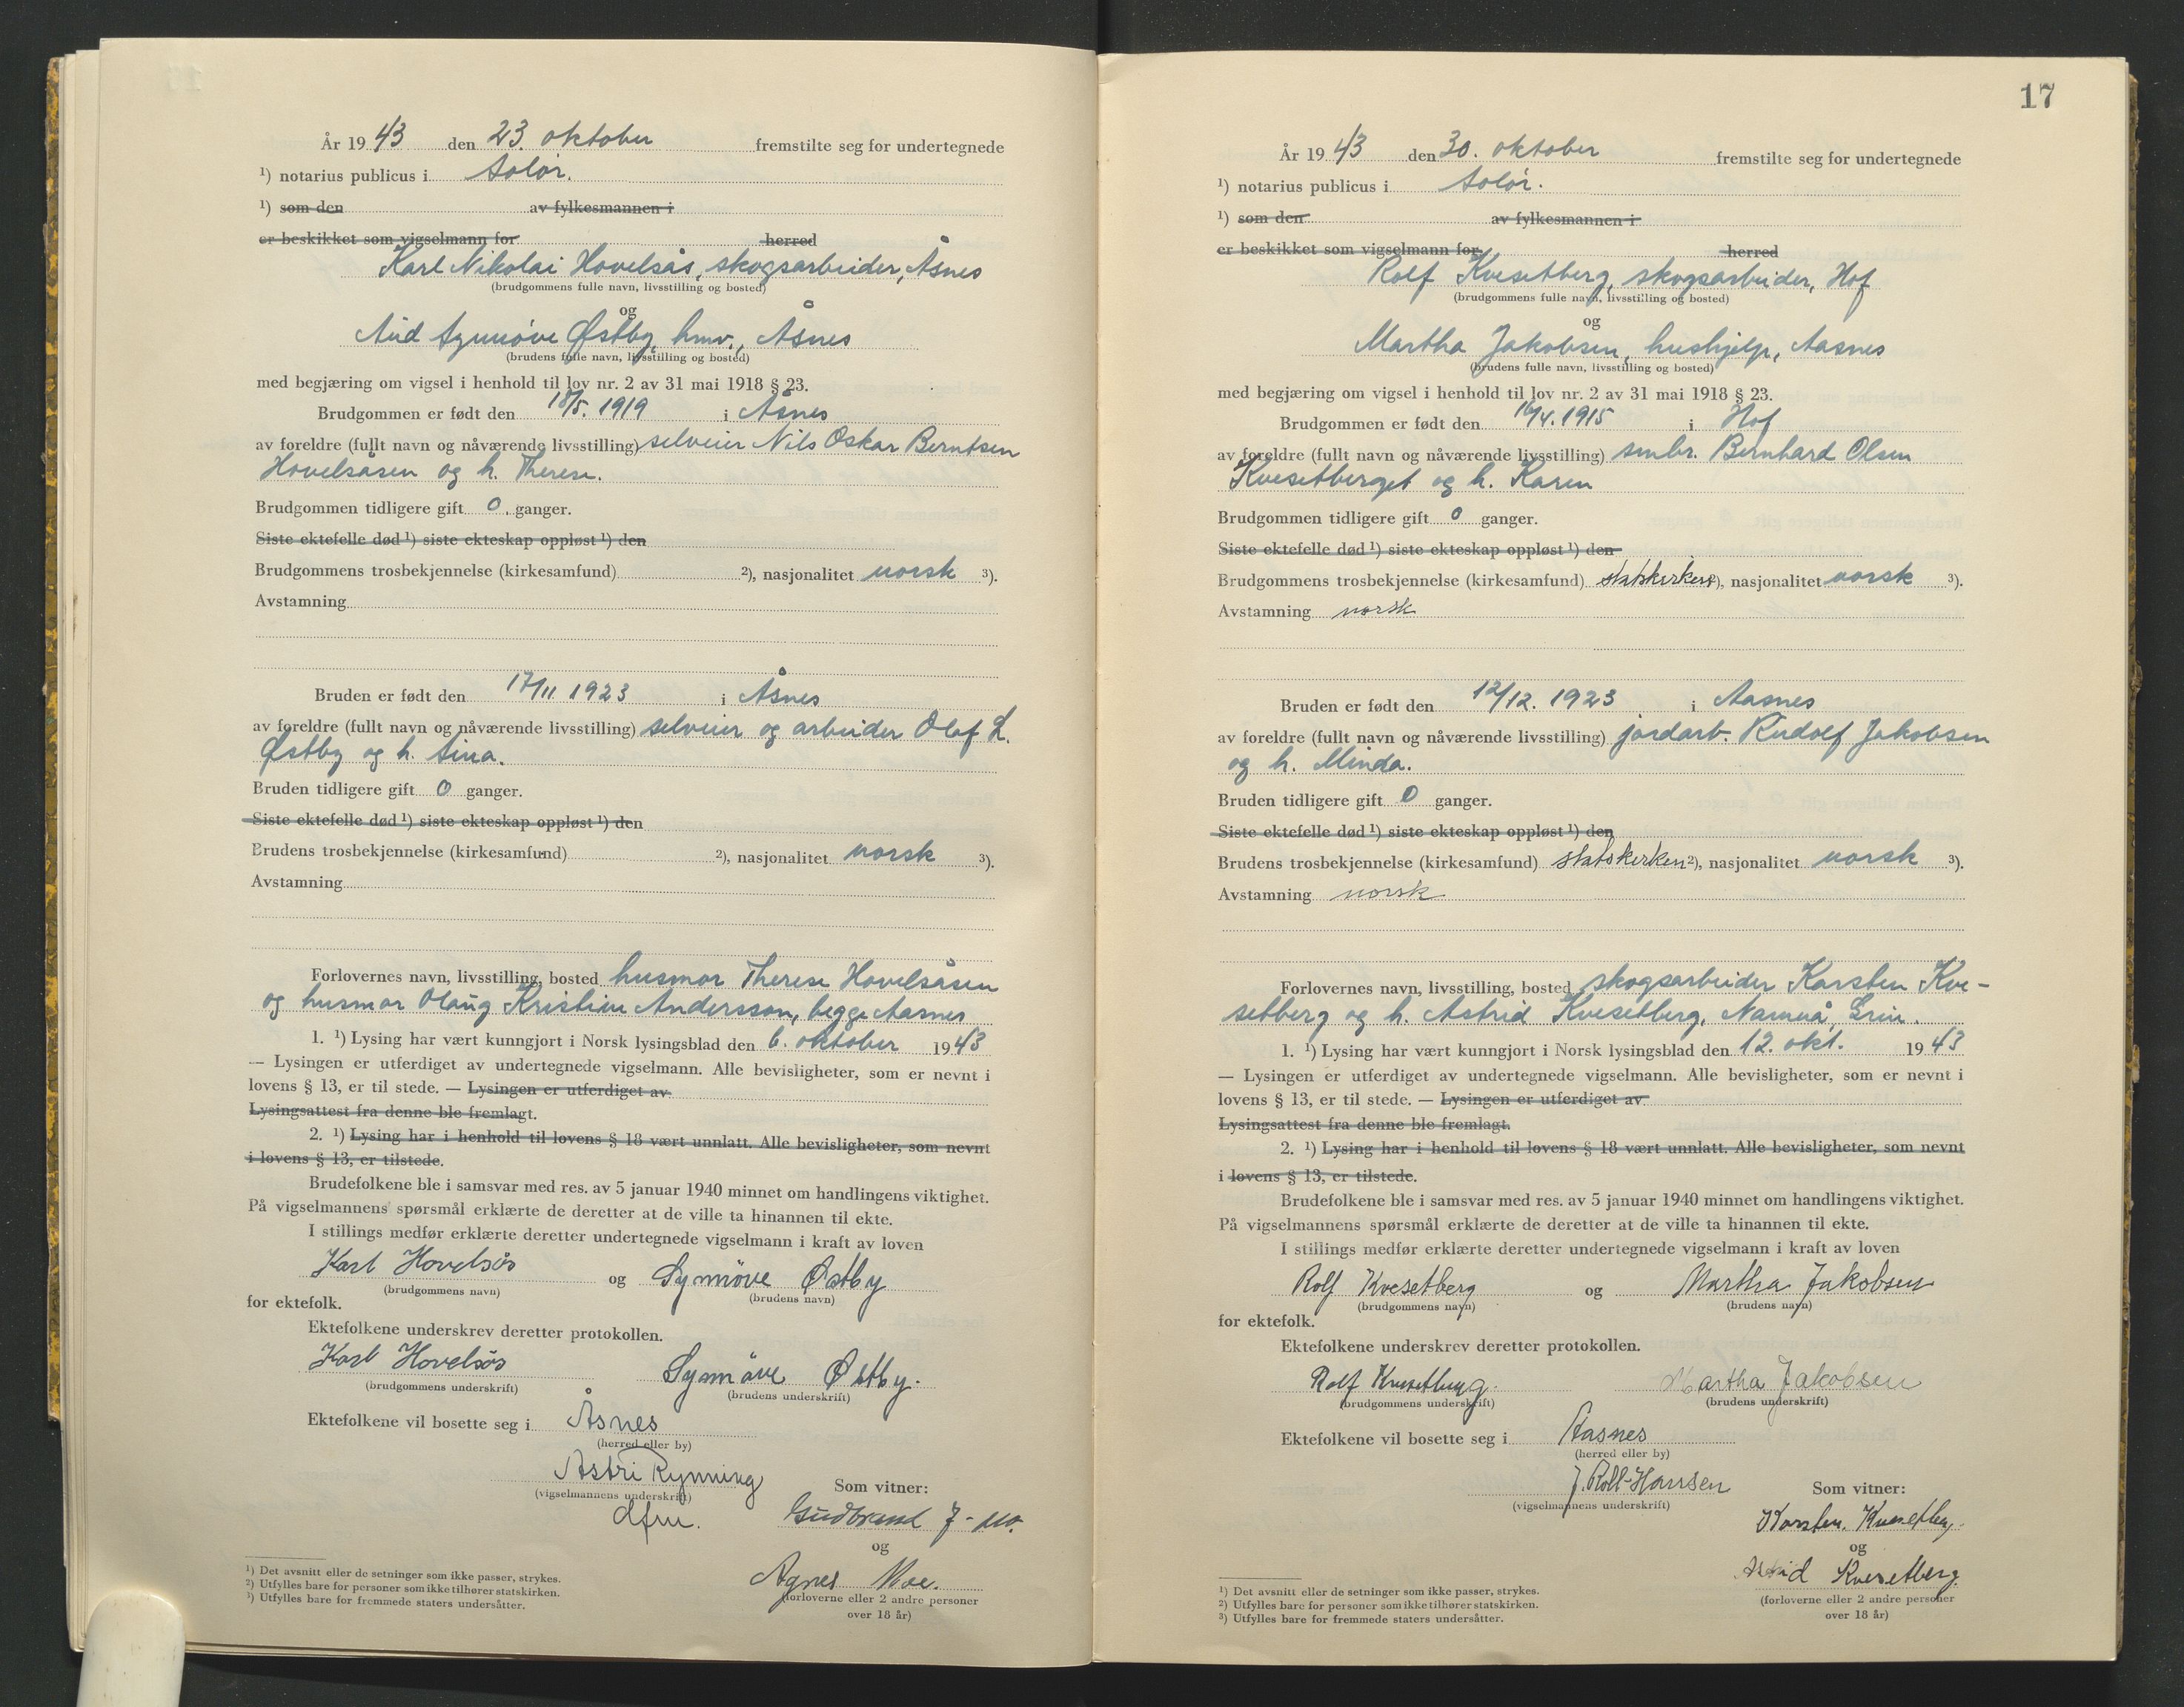 År 1943 den 23. oktober fremstilte seg for undertegnede
¹) notarius publicus i Solør.
¹) som den av fylkesmannen i
er beskikket som vigselmann for herred
Karl Nikolai Hovelsås, skogsarbeider, Åsnes
(brudgommens fulle navn, livsstilling og bosted)
og
Aud Synnøve Østby, hmv., Åsnes
(brudens fulle navn, livsstilling og bosted)
med begjæring om vigsel i henhold til lov nr. 2 av 31 mai 1918 § 23.
Brudgommen er født den 18/5. 1919 i Åsnes
av foreldre (fullt navn og nåværende livsstilling) selveier Nils Oskar Berntsen
Hovelsåsen og h. Therese.
Brudgommen tidligere gift 0 ganger.
Siste ektefelle død ¹) siste ekteskap oppløst ¹) den
Brudgommens trosbekjennelse (kirkesamfund) ²), nasjonalitet norsk ³).
Avstamning
Bruden er født den 17/11 1923 i Åsnes
av foreldre (fullt navn og nåværende livsstilling) selveier og arbeider Olaf L.
Østby og h. Sina.
Bruden tidligere gift 0 ganger.
Siste ektefelle død ¹) siste ekteskap oppløst ¹) den
Brudens trosbekjennelse (kirkesamfund) ²), nasjonalitet norsk ³).
Avstamning
Forlovernes navn, livsstilling, bosted husmor Therese Hovelsåsen
og husmor Olaug Kristine Andersson, begge Aasnes
1. ¹) Lysing har vært kunngjort i Norsk lysingsblad den 6. oktober 1943
— Lysingen er utferdiget av undertegnede vigselmann. Alle bevisligheter, som er nevnt i
lovens § 13, er til stede. — Lysingen er utferdiget av
Lysingsattest fra denne ble fremlagt.
2. ¹) Lysing har i henhold til lovens § 18 vært unnlatt. Alle bevisligheter, som nevnt
i lovens § 13, er tilstede.
Brudefolkene ble i samsvar med res. av 5 januar 1940 minnet om handlingens viktighet.
På vigselmannens spørsmål erklærte de deretter at de ville ta hinannen til ekte.
I stillings medfør erklærte deretter undertegnede vigselmann i kraft av loven
Karl Hovelsås og Synnöve Østby
(brudgommens navn) (brudens navn)
for ektefolk.
Ektefolkene underskrev deretter protokollen.
Karl Hovelsås Synnöve Østby.
(brudgommens underskrift) (brudens underskrift)
Ektefolkene vil bosette seg i Åsnes
(herred eller by)
Astri Rynning
(vigselmannens underskrift) Som vitner:
dfm. Gudbrand
og
Agnes Moe.
(forloverne eller 2 andre personer
over 18 år)
¹) Det avsnitt eller de setninger som ikke passer, strykes.
²) Utfylles bare for personer som ikke tilhører statskirken.
³) Utfylles bare for fremmede staters undersåtter.
17
År 1943 den 30. oktober fremstilte seg for undertegnede
¹) notarius publicus i Solør.
¹) som den av fylkesmannen i
er beskikket som vigselmann for herred
Rolf Kvesetberg, skogsarbeider, Hof
(brudgommens fulle navn, livsstilling og bosted)
og
Martha Jakobsen, hushjelp, Aasnes
(brudens fulle navn, livsstilling og bosted)
med begjæring om vigsel i henhold til lov nr. 2 av 31 mai 1918 § 23.
Brudgommen er født den 16/4. 1915 i Hof
av foreldre (fullt navn og nåværende livsstilling) smbr. Bernhard Olsen
Kvesetberget og h. Karen
Brudgommen tidligere gift 0 ganger.
Siste ektefelle død ¹) siste ekteskap oppløst ¹) den
Brudgommens trosbekjennelse (kirkesamfund) statskirken ²), nasjonalitet norsk ³).
Avstamning norsk
Bruden er født den 12/12. 1923 i Aasnes
av foreldre (fullt navn og nåværende livsstilling) jordarb. Rudolf Jakobsen
og h. Minda.
Bruden tidligere gift 0 ganger.
Siste ektefelle død ¹) siste ekteskap oppløst ¹) den
Brudens trosbekjennelse (kirkesamfund) statskirken ²), nasjonalitet norsk ³).
Avstamning norsk
Forlovernes navn, livsstilling, bosted skogsarbeider Karsten Kve-
setberg og h. Astrid Kvesetberg, Namnå, Grue.
1. ¹) Lysing har vært kunngjort i Norsk lysingsblad den 12. okt. 1943
— Lysingen er utferdiget av undertegnede vigselmann. Alle bevisligheter, som er nevnt i
lovens § 13, er til stede. — Lysingen er utferdiget av
Lysingsattest fra denne ble fremlagt.
2. ¹) Lysing har i henhold til lovens § 18 vært unnlatt. Alle bevisligheter, som nevnt
i lovens § 13, er tilstede.
Brudefolkene ble i samsvar med res. av 5 januar 1940 minnet om handlingens viktighet.
På vigselmannens spørsmål erklærte de deretter at de ville ta hinannen til ekte.
I stillings medfør erklærte deretter undertegnede vigselmann i kraft av loven
Rolf Kvesetberg og Martha Jakobsen
(brudgommens navn) (brudens navn)
for ektefolk.
Ektefolkene underskrev deretter protokollen.
Rolf Kvesetberg. Martha Jakobsen
(brudgommens underskrift) (brudens underskrift)
Ektefolkene vil bosette seg i Aasnes
(herred eller by)
J. Roll-Hanssen
(vigselmannens underskrift) Som vitner:
Karsten Kvesetberg.
og
Astrid Kvesetberg.
(forloverne eller 2 andre personer
over 18 år)
¹) Det avsnitt eller de setninger som ikke passer, strykes.
²) Utfylles bare for personer som ikke tilhører statskirken.
³) Utfylles bare for fremmede staters undersåtter.